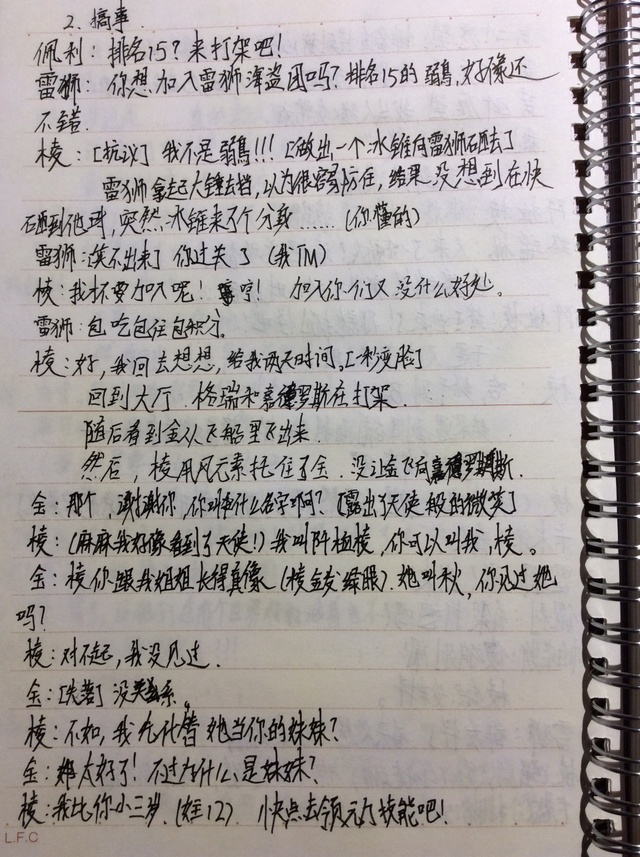 2、搞事
佩利：排名15？来打架吧！
雷狮：你想加入雷狮海盗团吗？排名15的弱鸡，好像还
不错.
棱：[抗议] 我不是弱鸡!!! [做出一个冰锥向雷狮砸去]
雷狮拿起大锤去挡，以为很容易防住，结果没想到在快
砸到他时，突然冰锥来了个分裂……（你懂的）
雷狮：滚不出来了 你过关了（我TM）
棱：我还不要加入呢！哼！ 加入你们又没什么好处。
雷狮：包吃包住包积分。
棱：好，我回去想想，给我两天时间。[一秒变脸]
回到大厅 格瑞和嘉德罗斯在打架.
随后看到金从飞船里飞出来.
然后，棱用风元素托住了金 没让金飞向嘉德罗斯.
金：那个，谢谢你，你叫什么名字啊？[露出了天使般的微笑]
棱：(麻麻我好像看到了天使!) 我叫阡植棱，你可以叫我，棱。
金：棱你跟我姐姐长得真像（棱金发绿眼）.她叫秋，你见过她
吗？
棱：对不起，我没见过.
金：[失落] 没关系。
棱：不如，我先代替她当你的妹妹？
金：那太好了！不过为什么是妹妹？
棱：我比你小三岁.（娃12） 快点去领元力技能吧！
L.F.C